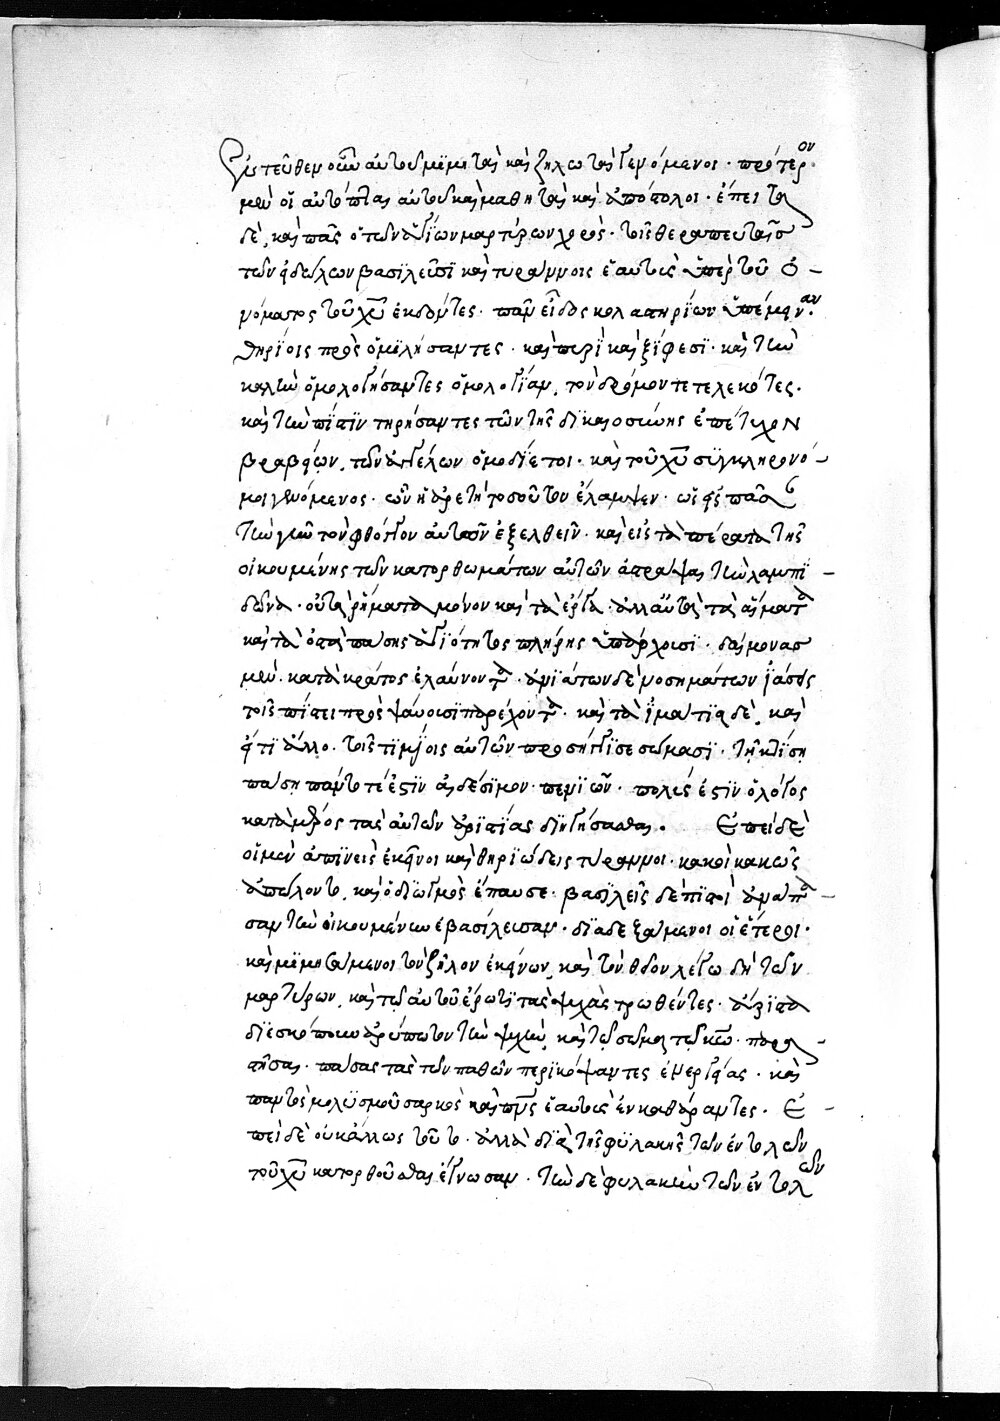 Ἐντεῦθεν οὖν αὐτοῦ μϊμηταὶ καὶ ζηλωταὶ γενόμενοι · πρότερον
μὲν οἱ αὐτόπται αὐτοῦ καὶ μαθηταὶ καὶ ἀπόστολοι · ἔπειτα
δὲ, καὶ πᾶς ὁ τῶν ἁγίων μαρτύρων χορὸς · τοῖς θεραπευταῖς
τῶν εἰδώλων βασϊλεῦσϊ καὶ τυράννοις ἑαυτοὺς ὑπὲρ τοῦ ὀ –
νόματος τοῦ χῦ ἐκδόντες · πᾶν εἶδος κολαστηρίων ὑπέμειναν ·
θηρίοις προσομϊλήσαντες · καὶ πυρὶ καὶ ξίφεσϊ · καὶ τὴν
καλὴν ὁμολογήσαντες ὁμολογίαν, τὸν δρόμον τετελεκότες ·
καὶ τὴν πίστϊν τηρήσαντες τῶν τῆς δϊκαιοσύνης ἐπέτυχον
βραβείων, τῶν ἀγγέλων ὁμοδίαιτοι · καὶ τοῦ χῦ συγκληρονό –
μοι γενόμενοι · ὧν ἡ ἀρετὴ τοσοῦτον ἔλαμψεν · ὡς εἰς πᾶσαν
τὴν γῆν τὸν φθόγγον αὐτῶν ἐξελθεῖν · καὶ εἰς τὰ πέρατα τῆς
οἰκουμένης τῶν κατορθωμάτων αὐτῶν ἀστράψαι τὴν λαμπη –
δόνα · οὗ τὰ ῥήματα μόνον καὶ τὰ ἔργα · ἀλλ' αὐτὰ τὰ αἵματα
καὶ τὰ ὀστᾶ πάσης ἁγιότητος πλήρης ὑπάρχουσϊ · δαίμονας
μὲν · κατὰ κράτος ἐλαύνοντα · ἀνϊάτων δὲ νοσημάτων ἰάσεις
τοῖς πίστει προσψαύουσϊ παρέχοντα · καὶ τὰ ἱμάτϊα δὲ, καὶ
εἴ τϊ ἄλλο · τοῖς τιμίοις αὐτῶν προσήγγϊσε σώμασϊ · τῇ κτίσει
πάσῃ πάντοτέ ἐστϊν αἰδέσϊμον · περὶ ὧν · πολύς ἐστϊν ὁ λόγος
κατὰ μέρος τὰς αὐτῶν ἀριστείας δϊηγήσασθαι . Ἐπεὶ δὲ
οἱ μὲν ἀπηνεῖς ἐκεῖνοι καὶ θηριώδεις τύραννοι · κακοὶ κακῶς
ἀπώλοντο, καὶ ὁ δϊωγμὸς ἔπαυσε · βασϊλεῖς δὲ πϊστοὶ ἀνὰ πᾶ –
σαν τὴν οἰκουμένην ἐβασίλευσαν · δϊαδεξάμενοι οἱ ἕτεροι ·
καὶ μϊμησάμενοι τὸν ζῆλον ἐκείνων, καὶ τὸν θεῖον λέγω δὴ τῶν
μαρτύρων, καὶ τῷ αὐτοῦ ἔρωτϊ τὰς ψυχὰς τρωθέντες · ἄριστα
δϊεσκόπουν ἀρρύπωτον τὴν ψυχὴν, καὶ τὸ σῶμα τῷ κῷ · παρα –
στῆσαι · πάσας τὰς τῶν παθῶν περϊκόψαντες ἐνεργείας · καὶ
παντὸς μολϋσμοῦ σαρκὸς καὶ πνς ἑαυτοὺς ἐκκαθάραντες · Ἐ –
πεὶ δὲ οὐκ ἄλλως τοῦτο · ἀλλὰ δϊὰ τῆς φϋλακῆς τῶν ἐντολῶν
τοῦ χῦ κατορθοῦσθαι ἔγνωσαν · τὴν δὲ φυλακὴν τῶν ἐντολῶν